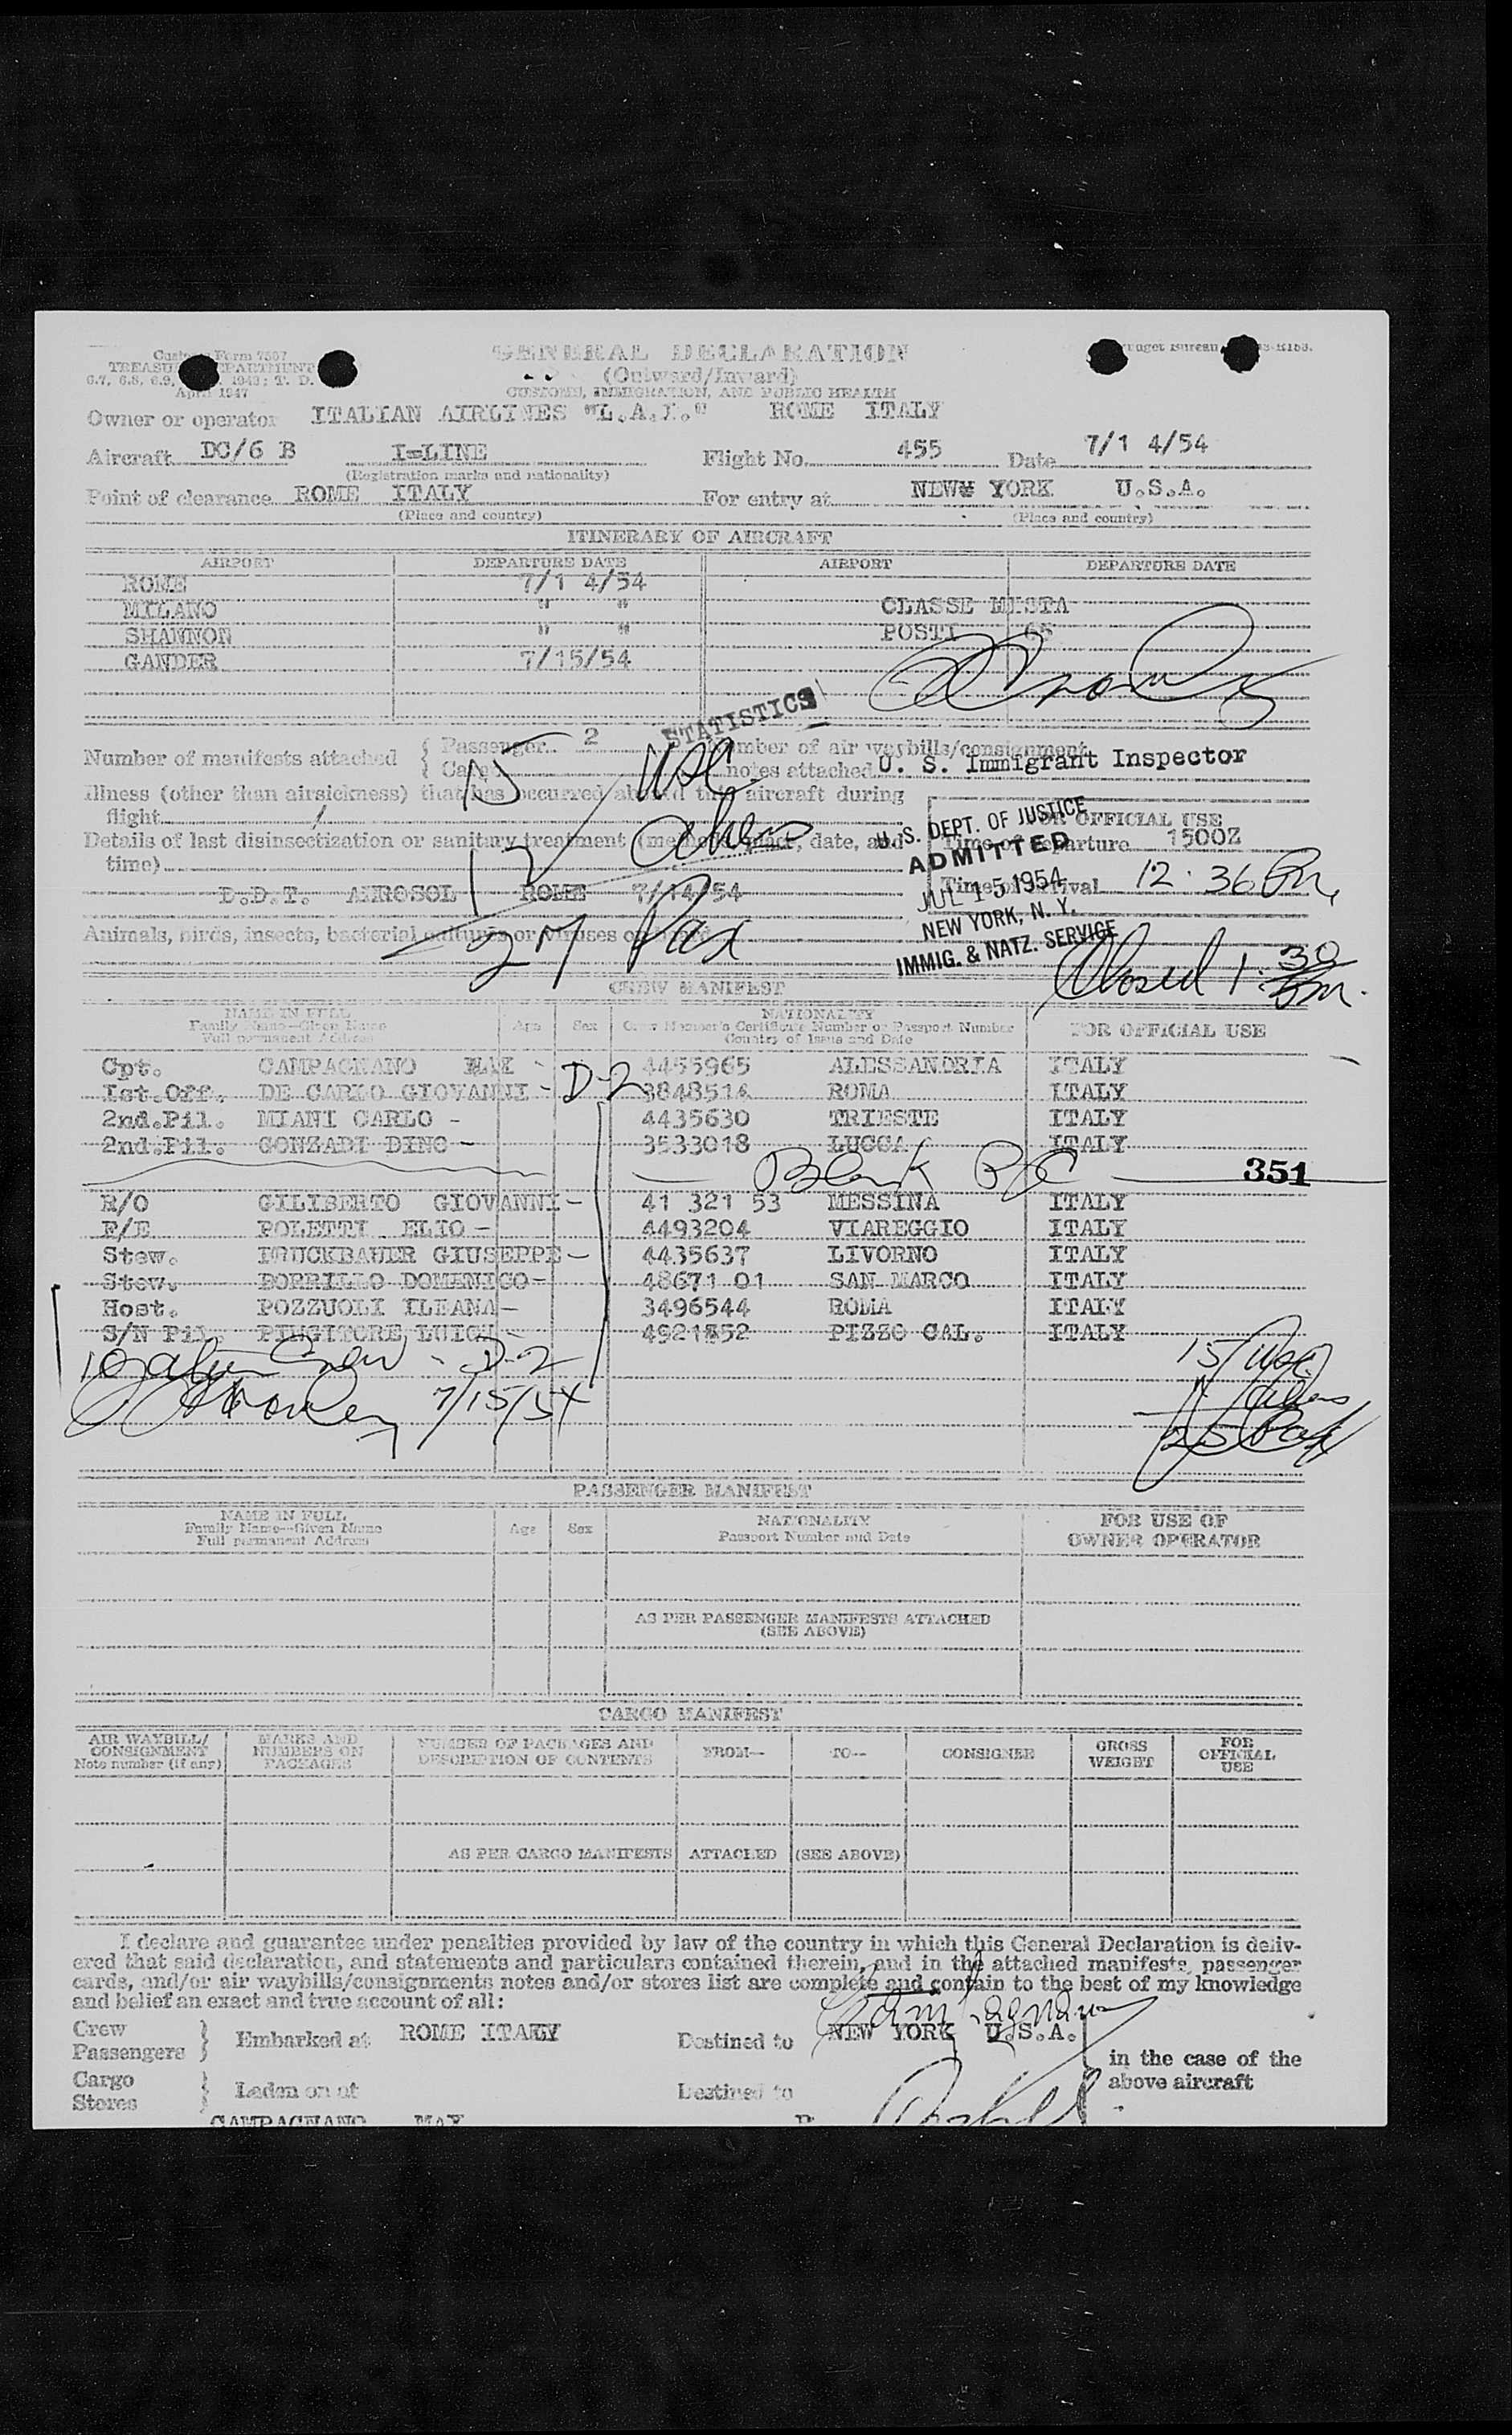 Customs Form 7507
TREASURY DEPARTMENT
6.7, 6.8, 6.9, 1948; T. D.
April 1947
GENERAL DECLARATION
(Outward/Inward)
CUSTOMS, IMMIGRATION, AND PUBLIC HEALTH
Owner or operator ITALIAN AIRLINES "L.A.I." ROME ITALY
Aircraft DC/6 B I=LINE Flight No. 455 Date 7/1 4/54
(Registration marks and nationality)
Point of clearance ROME ITALY For entry at NEW YORK U.S.A.
(Place and country) (Place and country)
ITINERARY OF AIRCRAFT
AIRPORT DEPARTURE DATE AIRPORT DEPARTURE DATE
ROME 7/1 4/54
MILANO " " CLASSE MISTA
SHANNON " " POSTI 65
GANDER 7/15/54
STATISTICS
Number of manifests attached { Passenger 2 Number of air waybills/consignment
Cargo notes attached U. S. Immigrant Inspector
Illness (other than airsickness) that has occurred aboard this aircraft during
flight
15 USC
12 aliens
27 Pax
Details of last disinsectization or sanitary treatment (method, place, date, and
time)
D.D.T. AEROSOL ROME 7/14/54
FOR OFFICIAL USE
Time of departure 1500Z
Time of arrival 12:36 Pm.
U. S. DEPT. OF JUSTICE
ADMITTED
JUL 15 1954
NEW YORK, N. Y.
IMMIG. & NATZ. SERVICE
Animals, birds, insects, bacterial cultures or viruses on board
Closed 1:30 Pm.
CREW MANIFEST
NAME IN FULL
Family Name—Given Name
Full permanent Address
Age Sex
NATIONALITY
Crew Member's Certificate Number or Passport Number
Country of Issue and Date
FOR OFFICIAL USE
Cpt. CAMPAGNANO MAX - 4455965 ALESSANDRIA ITALY
Ist.Off. DE CARLO GIOVANNI - D-2 3848514 ROMA ITALY
2nd.Pil. MIANI CARLO - 4435630 TRIESTE ITALY
2nd.Pil. GONZADI DINO - 3533018 LUCCA ITALY
Blank
351
R/O GILIBERTO GIOVANNI - 41 321 53 MESSINA ITALY
F/E POLETTI ELIO - 4493204 VIAREGGIO ITALY
Stew. GIUSEPPE - 4435637 LIVORNO ITALY
Stew. BORRILLO DOMENICO - 48671 01 SAN MARCO ITALY
Host. POZZUOLI ILEANA - 3496544 ROMA ITALY
S/N Pil. PIUGITORE LUIGI - PIZZO CAL. ITALY
10 alien Crew - D-2
7/15/54
15 USC
aliens
25 Pax
PASSENGER MANIFEST
NAME IN FULL
Family Name—Given Name
Full permanent Address
Age Sex
NATIONALITY
Passport Number and Date
FOR USE OF
OWNER OPERATOR
AS PER PASSENGER MANIFESTS ATTACHED
(SEE ABOVE)
CARGO MANIFEST
AIR WAYBILL/
CONSIGNMENT
Note number (if any)
MARKS AND
NUMBERS ON
PACKAGES
NUMBER OF PACKAGES AND
DESCRIPTION OF CONTENTS
FROM— TO— CONSIGNEE
GROSS
WEIGHT
FOR
OFFICIAL
USE
AS PER CARGO MANIFESTS ATTACHED (SEE ABOVE)
I declare and guarantee under penalties provided by law of the country in which this General Declaration is deliv-
ered that said declaration, and statements and particulars contained therein, and in the attached manifests, passenger
cards, and/or air waybills/consignments notes and/or stores list are complete and contain to the best of my knowledge
and belief an exact and true account of all:
Crew
Passengers } Embarked at ROME ITALY Destined to NEW YORK U.S.A.
in the case of the
above aircraft
Cargo
Stores } Laden on at Destined to
CAMPAGNANO MAX